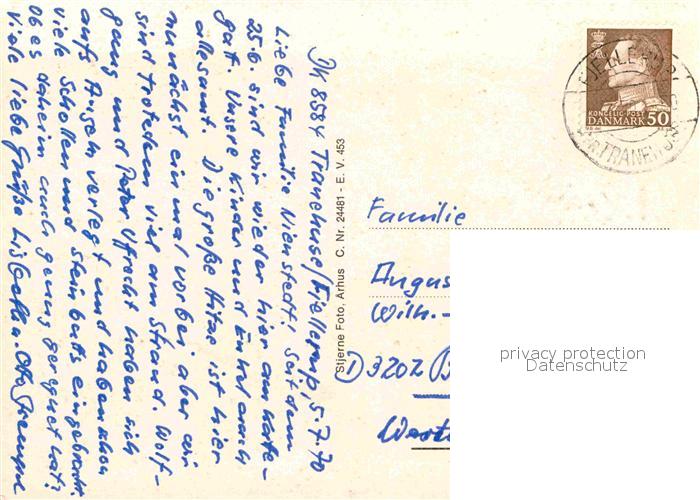 DK 8584 Tranehuse/Fjellerup, 5.7.70
Liebe Familie Nienstedt! Seit dem
25.6. sind wir wieder hier am Katte-
gat. Unsere Kinder und Enkel auch
allesamt. Die große Hitze ist hier
zunächst einmal vorbei, aber wir
sind trotzdem viel am Strand. Wolf-
gang und Peter haben sich
aufs Angeln verlegt und haben schon
viele Schollen und Steinbutts eingebracht.
Ob es daheim auch genug geregnet hat?
Viele liebe Grüße Otto
Stjerne Foto, Århus C. Nr. 24481 - E. V. 453
KONGELIG POST
DANMARK 50
FJELLERUP
TRANEHUSE
Familie
Augus
Wilh.-
D 3202 B
West
privacy protection
Datenschutz